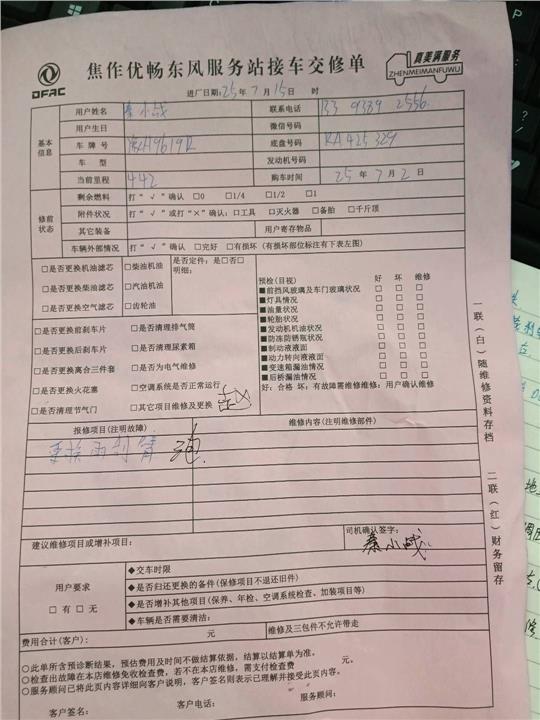 DFAC
焦作优畅东风服务站接车交修单
真美满服务
ZHENMEIMANFUWU
进厂日期:25年7月15日 时
基本信息
用户姓名 秦小战 联系电话 133 9389 2556
用户生日 微信号码
车牌号 底盘号码 RA425329
车型 发动机号码
当前里程 442 购车时间 25年7月2日
修前状态
剩余燃料 打“√”确认 □0 □1/4 □1/2 □1
附件状况 打“√”或打“×”确认:□工具 □灭火器 □备胎 □千斤顶
其它装备 用户寄存物品
车辆外部情况 打“√”确认 □完好 □有损坏(有损坏部位标注有下表左图)
□是否更换机油滤芯 □柴油机油 是否定件:是□否□
明细:
□是否更换柴油滤芯 □汽油机油
□是否更换空气滤芯 □齿轮油
□是否更换前刹车片 □是否清理排气筒
□是否更换后刹车片 □是否清理尿素箱
□是否更换离合三件套 □是否为电气维修
□是否更换火花塞 □空调系统是否正常运行
□是否清理节气门 □其它项目维修及更换
预检(目视) 好 坏 维修
■前挡风玻璃及车门玻璃状况 □ □ □
■灯具情况 □ □ □
■油量状况 □ □ □
■轮胎状况 □ □ □
■发动机机油状况 □ □ □
■防冻防锈瓶状况 □ □ □
■制动液液面 □ □ □
■动力转向液液面 □ □ □
■变速箱漏油情况 □ □ □
■后桥漏油情况 □ □ □
好:合格 坏:有故障需维修维修:用户确认维修
报修项目(注明故障) 维修内容(注明维修部件)
更换雨刮臂
建议维修项目或增补项目:
司机确认签字:
秦小战
用户要求
□有 □无
◆交车时限
◆是否归还更换的备件(保修项目不退还旧件)
◆是否增补其他项目(保养、年检、空调系统检查、加装项目等)
◆车辆是否需要清洁:
费用合计(客户): 元 维修及三包件不允许带走
○此单所含预诊断结果,预估费用及时间不做结算依据,结算以结算单为准。
○检查出故障在本店维修免收检查费,若不在本店维修,需支付检查费 元。
○服务顾问已将此页内容详细向客户说明,客户签名则表示已理解并接受此页内容。
客户签名: 客户电话: 服务顾问:
一联(白)随维修资料存档
二联(红)财务留存